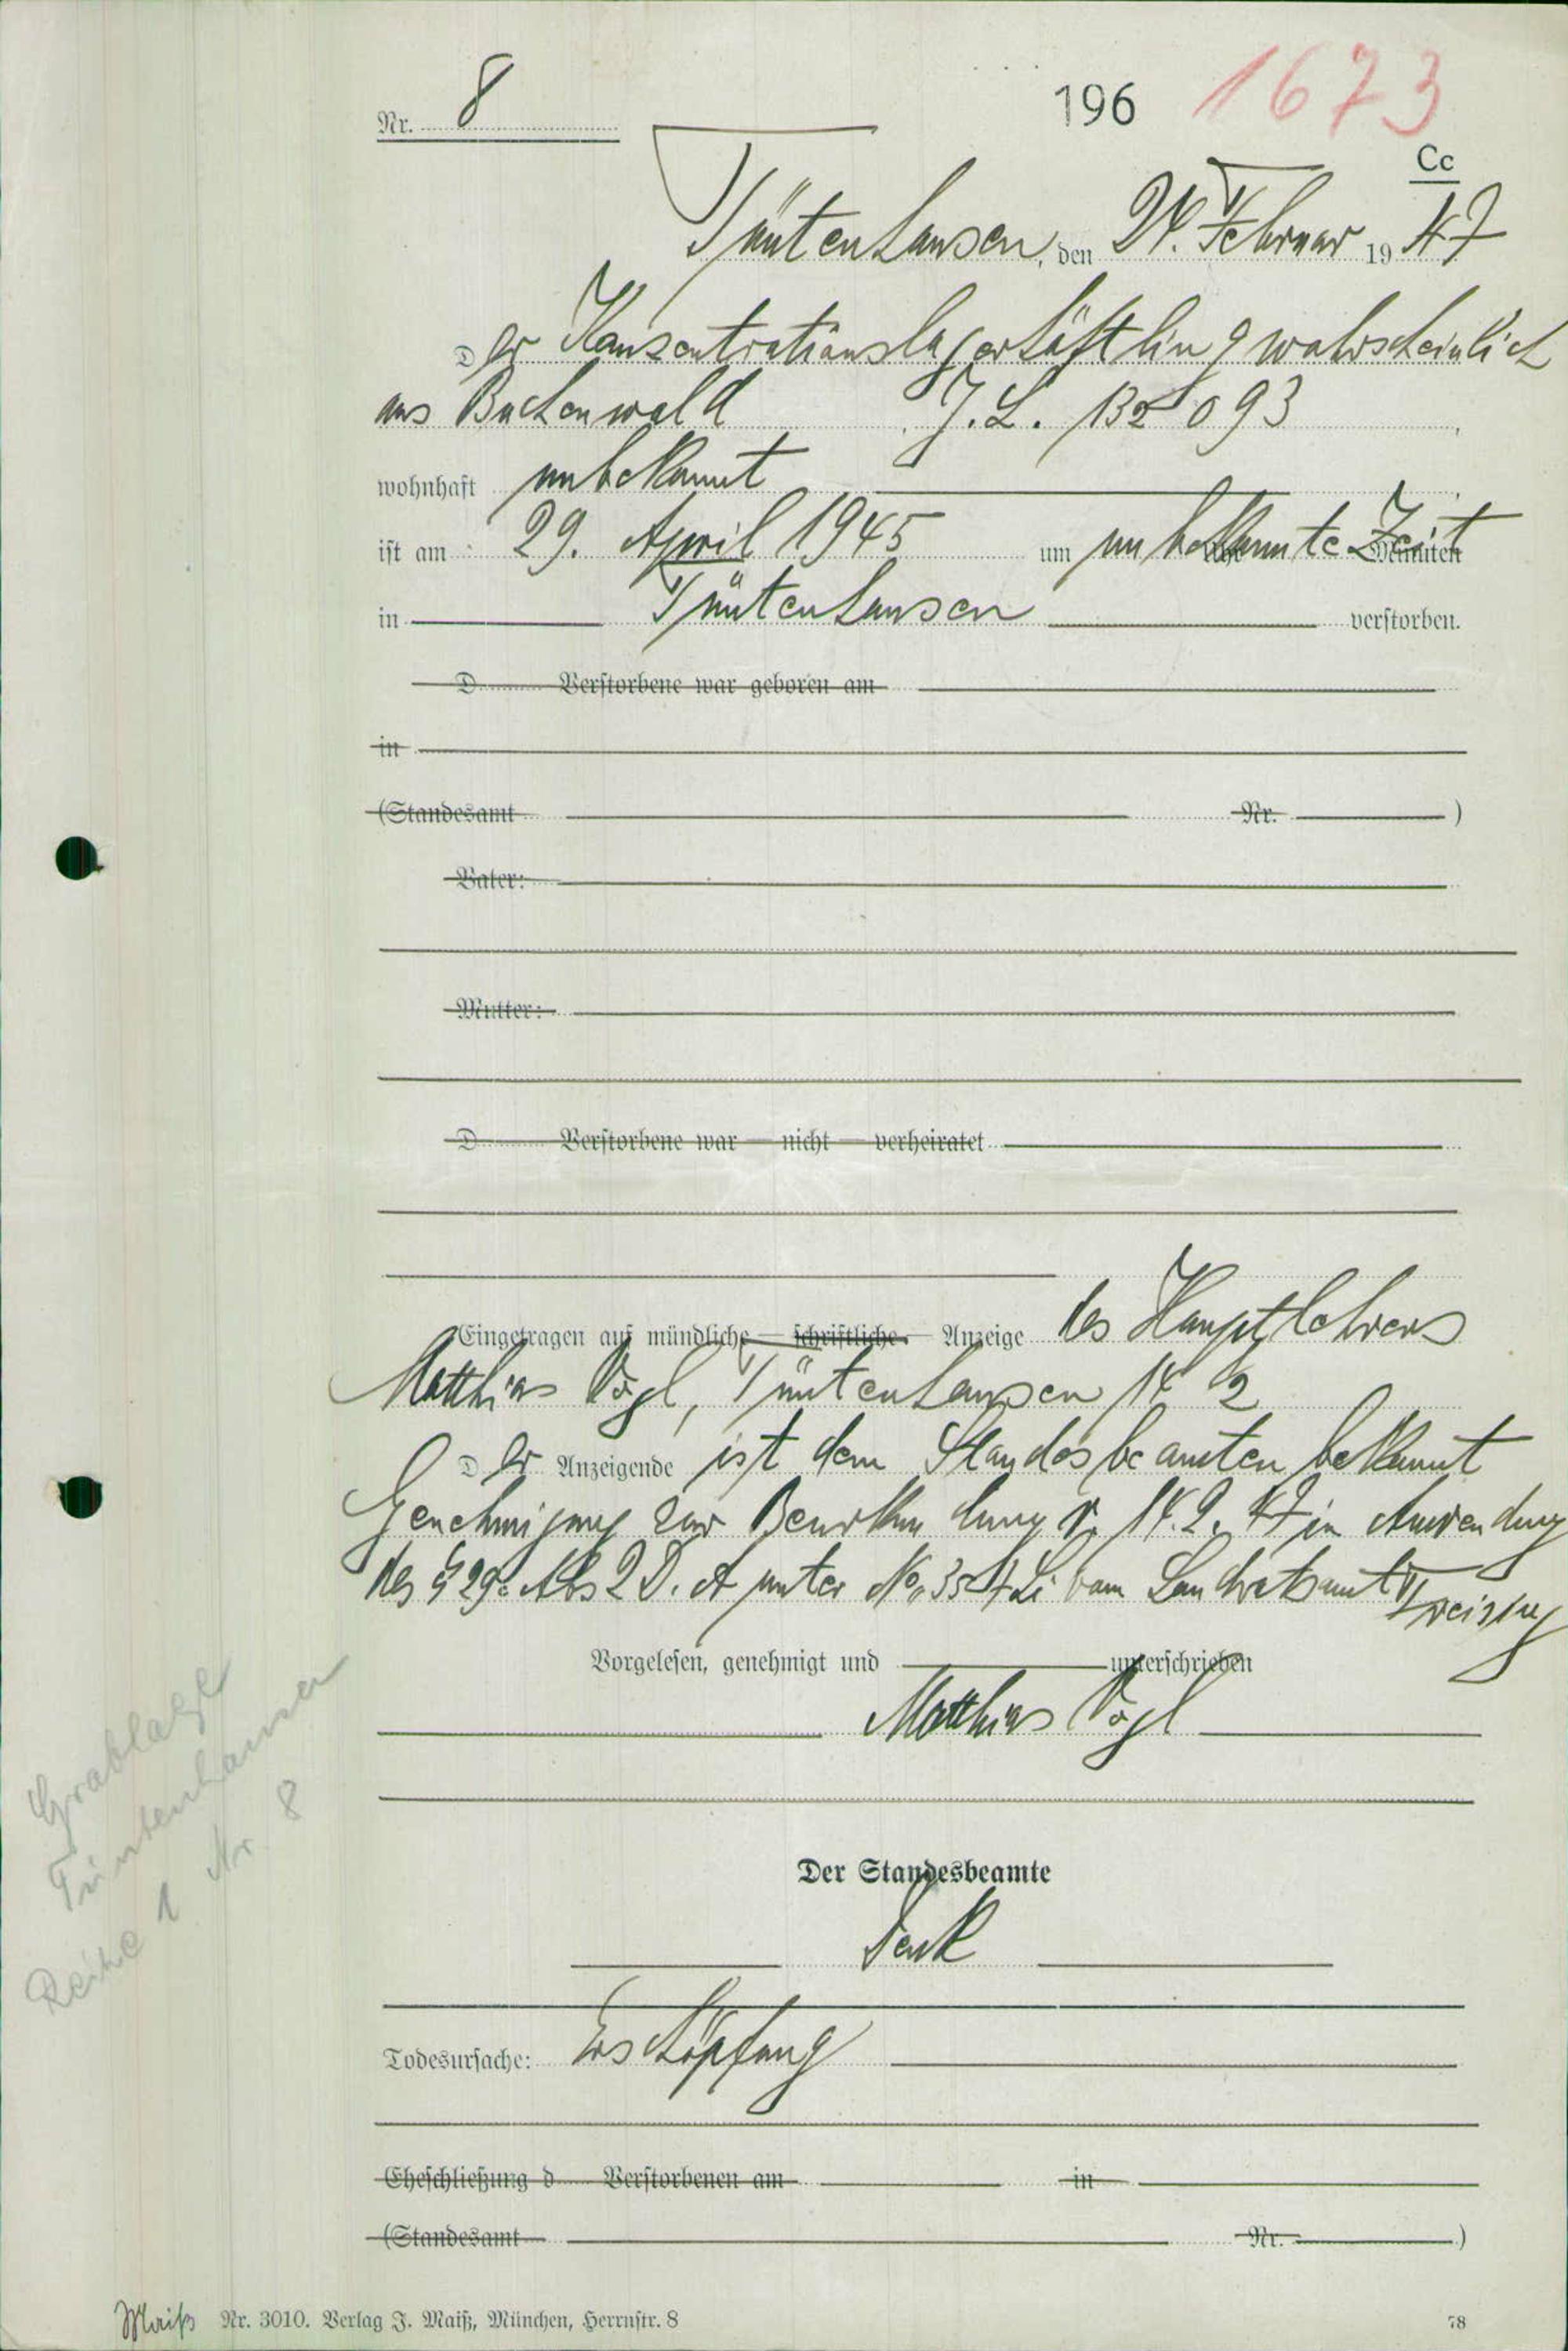 Nr. 8
196 1673
Cc
Tüntenhausen, den 24. Februar 1947
Der Konzentrationslagerhäftling wahrscheinlich
aus Buchenwald J.L. 132093
wohnhaft unbekannt
ist am 29. April 1945 um unbekannte Zeit Uhr Minuten
in Tüntenhausen verstorben.
D Verstorbene war geboren am
in
(Standesamt Nr. )
Vater:
Mutter:
D Verstorbene war — nicht — verheiratet
Eingetragen auf mündliche — schriftliche — Anzeige des Hauptlehrers
Matthias Vogl, Tüntenhausen 14 2
Der Anzeigende ist dem Standesbeamten bekannt
Genehmigung zur Beurkundung v. 14.2.47 in Anwendung
des § 29a Abs 2 D. A unter No. vom Landratsamt Freising
Vorgelesen, genehmigt und unterschrieben
Matthias Vogl
Grablage
Tüntenhausen
Reihe 1 Nr. 8
Der Standesbeamte
Todesursache: Erschöpfung
Eheschließung d Verstorbenen am in
(Standesamt Nr. )
Maiß Nr. 3010. Verlag J. Maiß, München, Herrnstr. 8 78